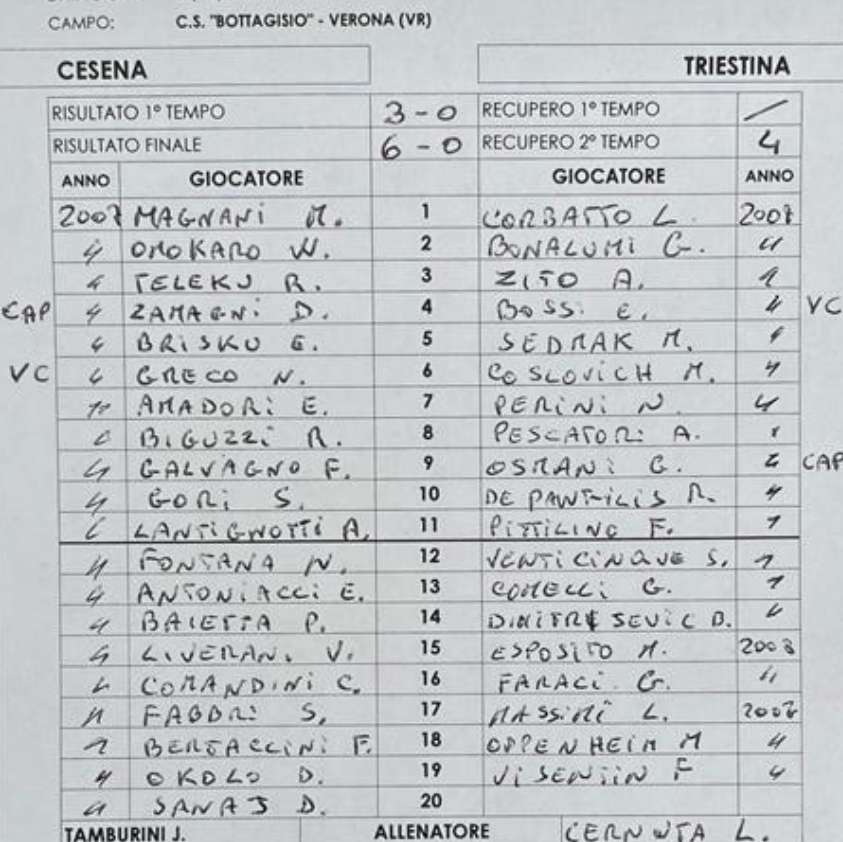 CAMPO: C.S. "BOTTAGISIO" - VERONA (VR)
CESENA TRIESTINA
RISULTATO 1° TEMPO 3 - 0 RECUPERO 1° TEMPO /
RISULTATO FINALE 6 - 0 RECUPERO 2° TEMPO 4
ANNO GIOCATORE GIOCATORE ANNO
2007 MAGNANI M. 1 CORBATTO L. 2007
" OMOKARO W. 2 BONALUMI G. "
" TELEKU R. 3 ZITO A. "
CAP " ZAMAGNI D. 4 BOSSI E. " VC
" BRISKU E. 5 SEDMAK M. "
VC " GRECO N. 6 COSLOVICH M. "
" AMADORI E. 7 PERINI N. "
" BIGUZZI R. 8 PESCATORI A. "
" GALVAGNO F. 9 OSMANI G. " CAP
" GORI S. 10 DE R. "
" LANTIGNOTTI A. 11 PITTILINO F. "
" FONTANA N. 12 VENTICINQUE S. "
" ANTONIACCI E. 13 COMELLI G. "
" BAIETTA P. 14 B. "
" LIVERANI V. 15 ESPOSITO M. 2008
" COMANDINI C. 16 FARACI G. "
" FABBRI S. 17 MASSIMI L.
" BERTACCINI F. 18 OPPENHEIM M "
" OKOLO D. 19 VISENTIN F "
" SANAJ D. 20
TAMBURINI J. ALLENATORE CERNUTA L.